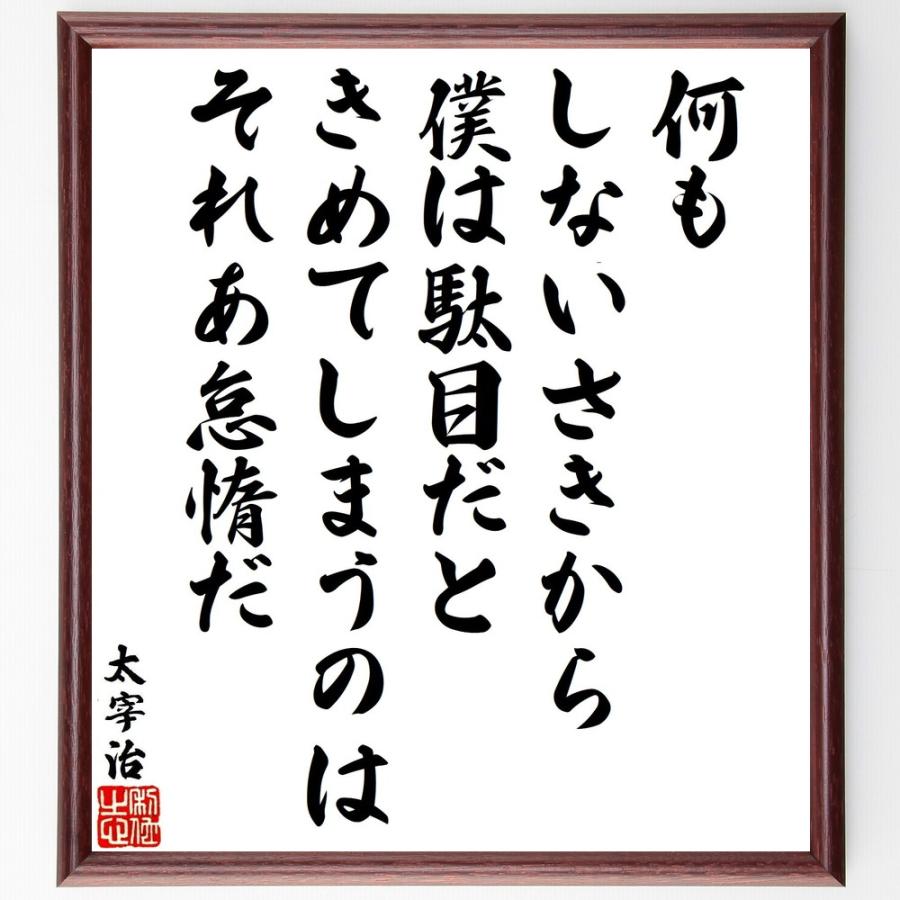 何も
しないさきから
僕は駄目だと
きめてしまうのは
それあ怠惰だ
太宰治